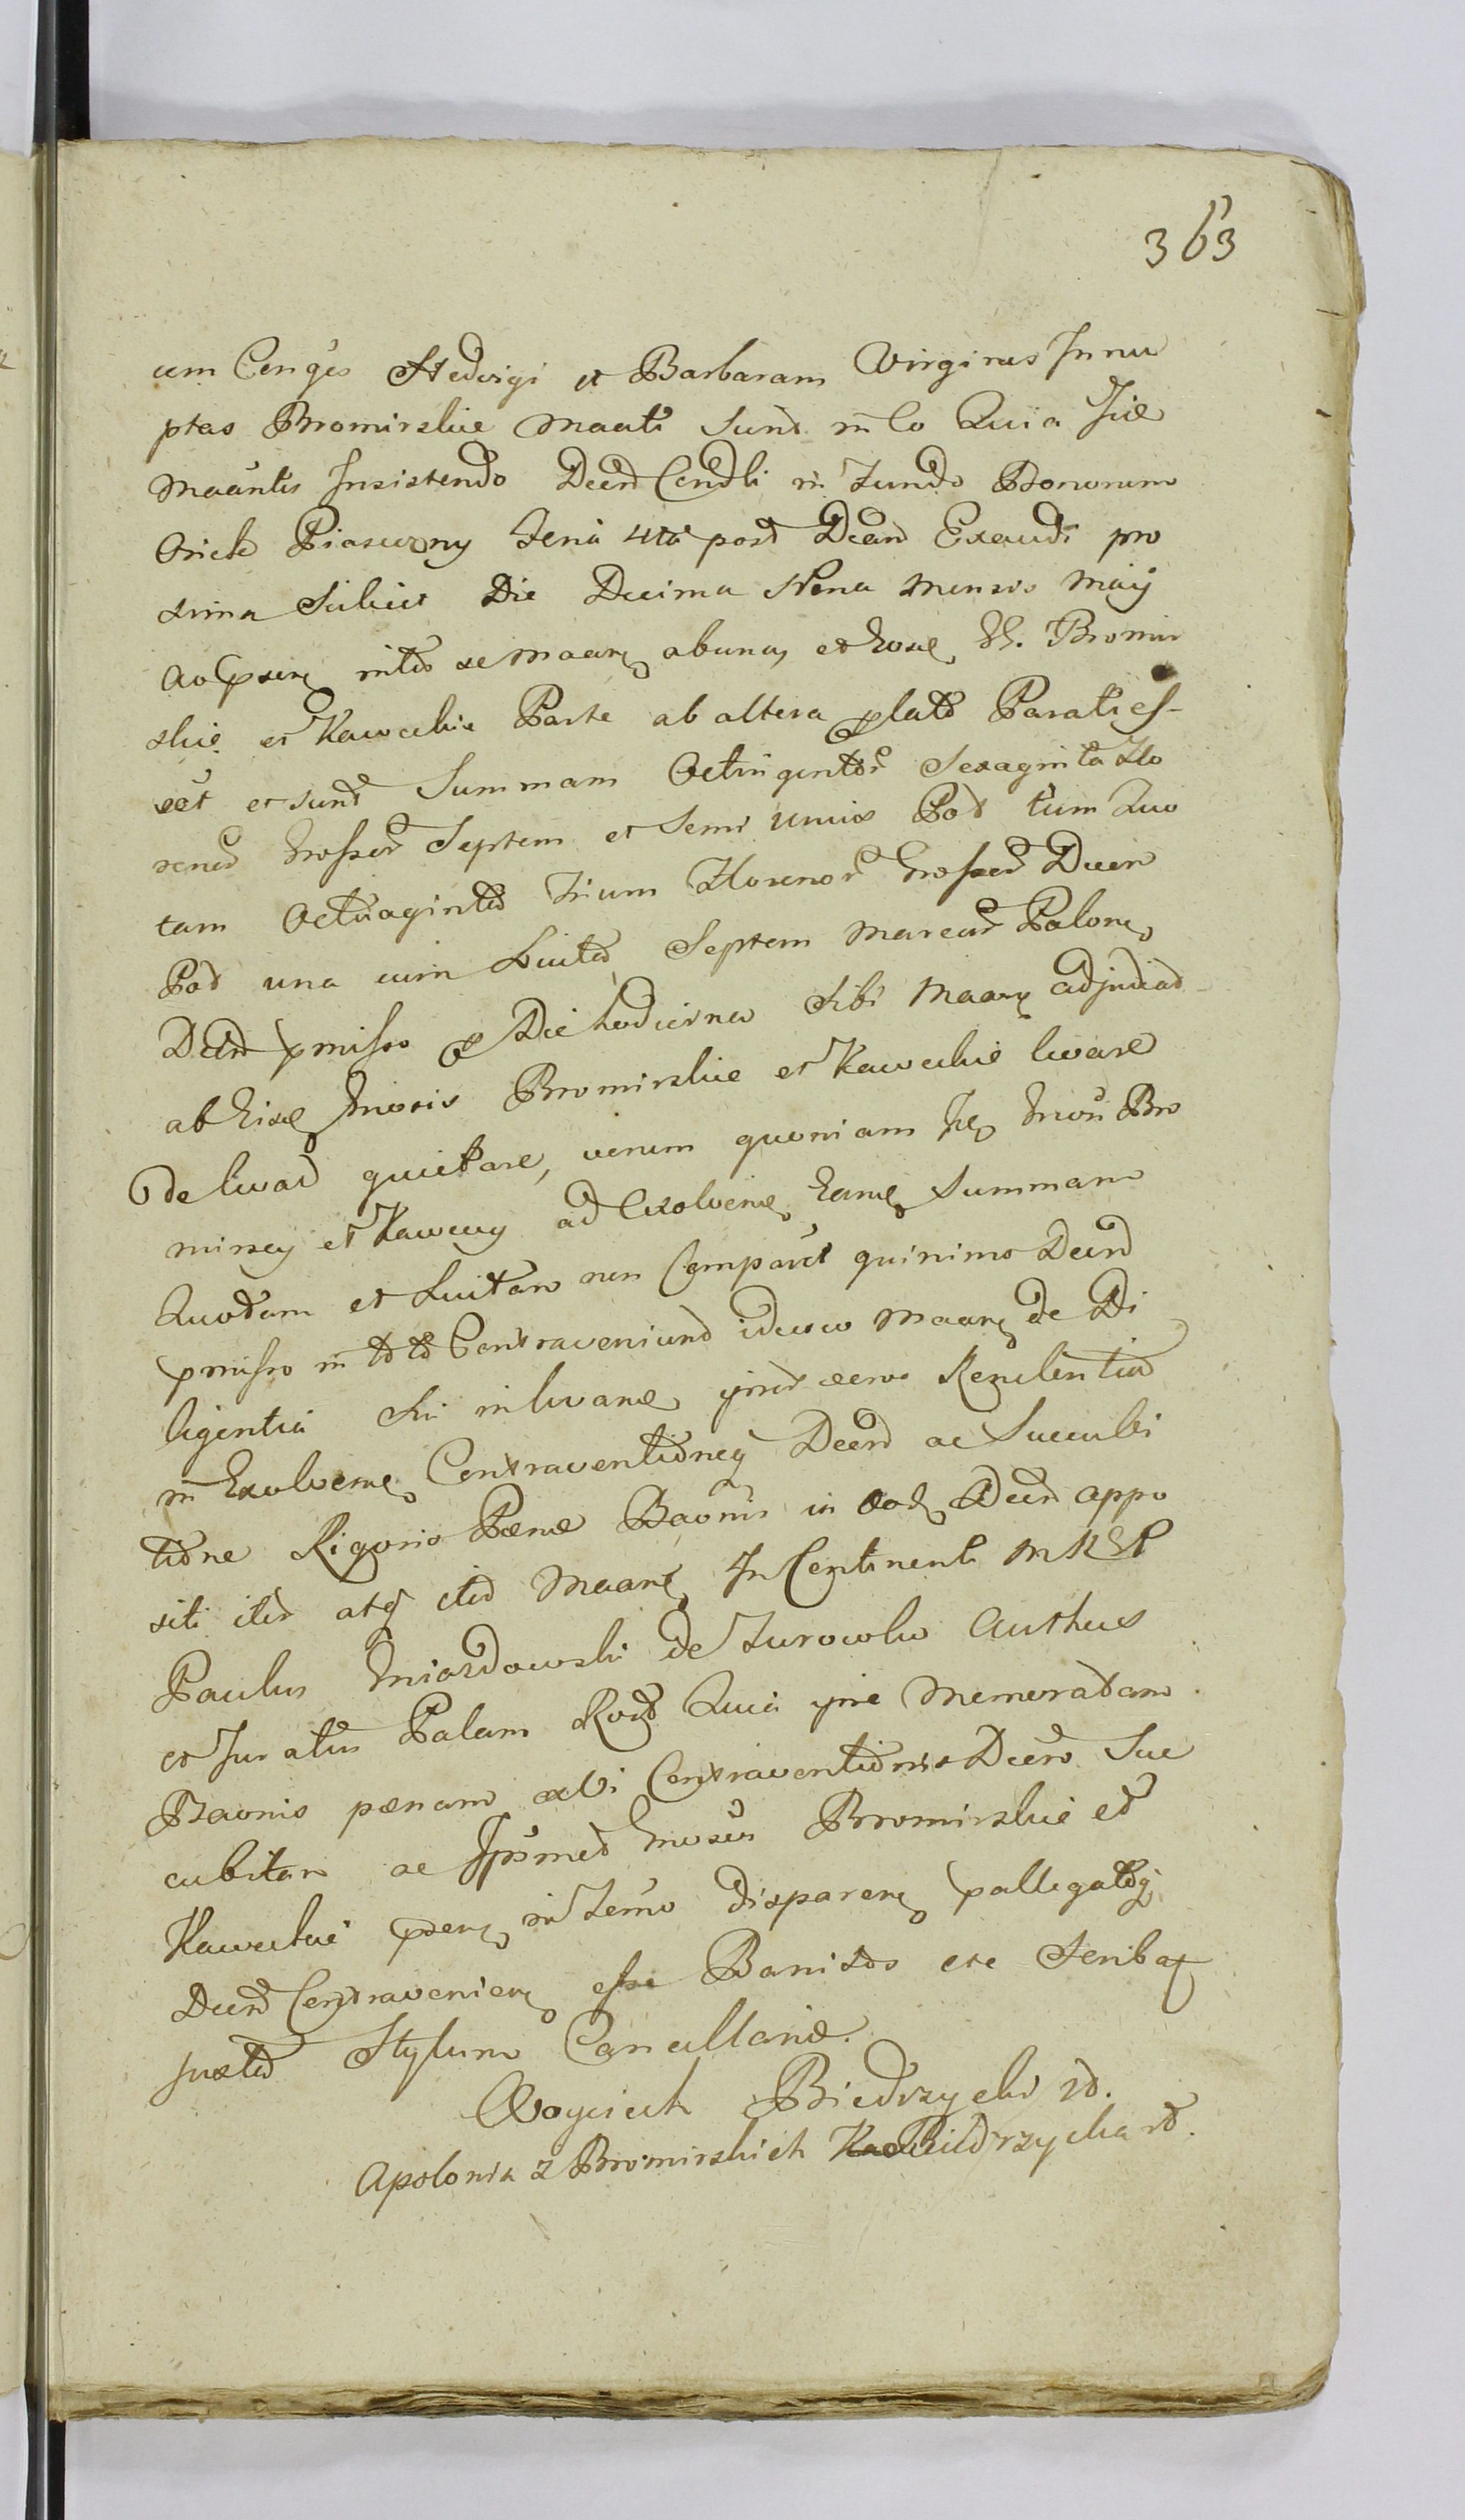 363
cum Conges Hedvigi et Barbaram Virgines Innu
ptas Bromirskie Maāti Sunt in Eo Quia Jidē
Maāntes Insistendo Decrō Condli in Fundo Bonorum
Orich Piaseczny Feria 4ta post Dcam Exaudi pro
xima Scilicet Die Decima Nona Mensis Maij
Ao pser inter se Maare ab una, et Eosd G. Bromir
skie et Kaweckie Parte ab altera plato Parati es-
sēt et sunt Summam Octingentōr Sexaginta Flo
renōr Grossōr Septem et Semi unius Pol tum Quo
tam Octuagintā Trium Florenōr Grossōr Decem
Pol una cum Luitā Septem Marcar Polon
Decrō pmisso Die hodierna Sibi Maar adjudicat
ab Eisd Gnosis Bromirskie et Kaweckie levare
de levat quietare, verum quoniam Jid Gnosi Bro
mirscy et Kawccy ad Exolvend Eand Summam
Quotam et Luitam non Comparēt quinimo Decrō
pmisso in toto Contraveniunt idcirco Maare de Di
ligentia Sui in levand pmis vero Renclentia
in Exolvend Contraventioneq Decrō ac Succubi
tione Rigoris Pænæ Baōnis in Eod Decrō appo
siti iter atq iter Maare In Continenti MRGP
Paulus Gniazdowski de Zurowko Authus
et Juratus Palam Rogt Quia pme Memoratam
Baonis pænam ex Vi Contraventionis Decro Suc
cubitam ac Ipsmet Gnosos Bromirskie et
Kaweckie pser in Termo disparen palligatoq
Decrō Contravenien esse Banitos etc Scribat
juxta Stylum Cancellariæ.
Woyciech Biedrzycki rd.
Apolonia z Bromirskich Biedrzycka rd.